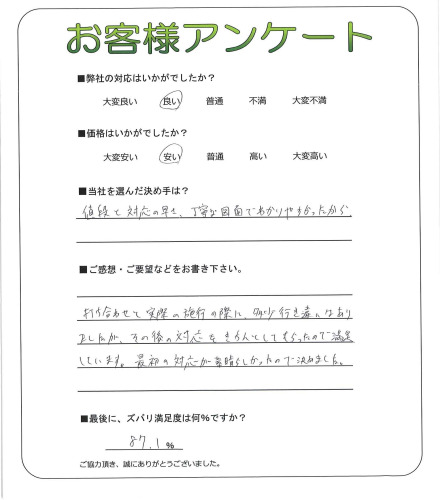 お客様アンケート
■弊社の対応はいかがでしたか？
大変良い 良い 普通 不満 大変不満
■価格はいかがでしたか？
大変安い 安い 普通 高い 大変高い
■当社を選んだ決め手は？
値段と対応の早さ、丁寧な図面でわかりやすかったから
■ご感想・ご要望などをお書き下さい。
打ち合わせと実際の施行の際に、多少行き違いはあり
ましたが、その後の対応をきちんとしてもらったので満足
しています。最初の対応が素晴らしかったので決めました。
■最後に、ズバリ満足度は何%ですか？
87.1 %
ご協力頂き、誠にありがとうございました。